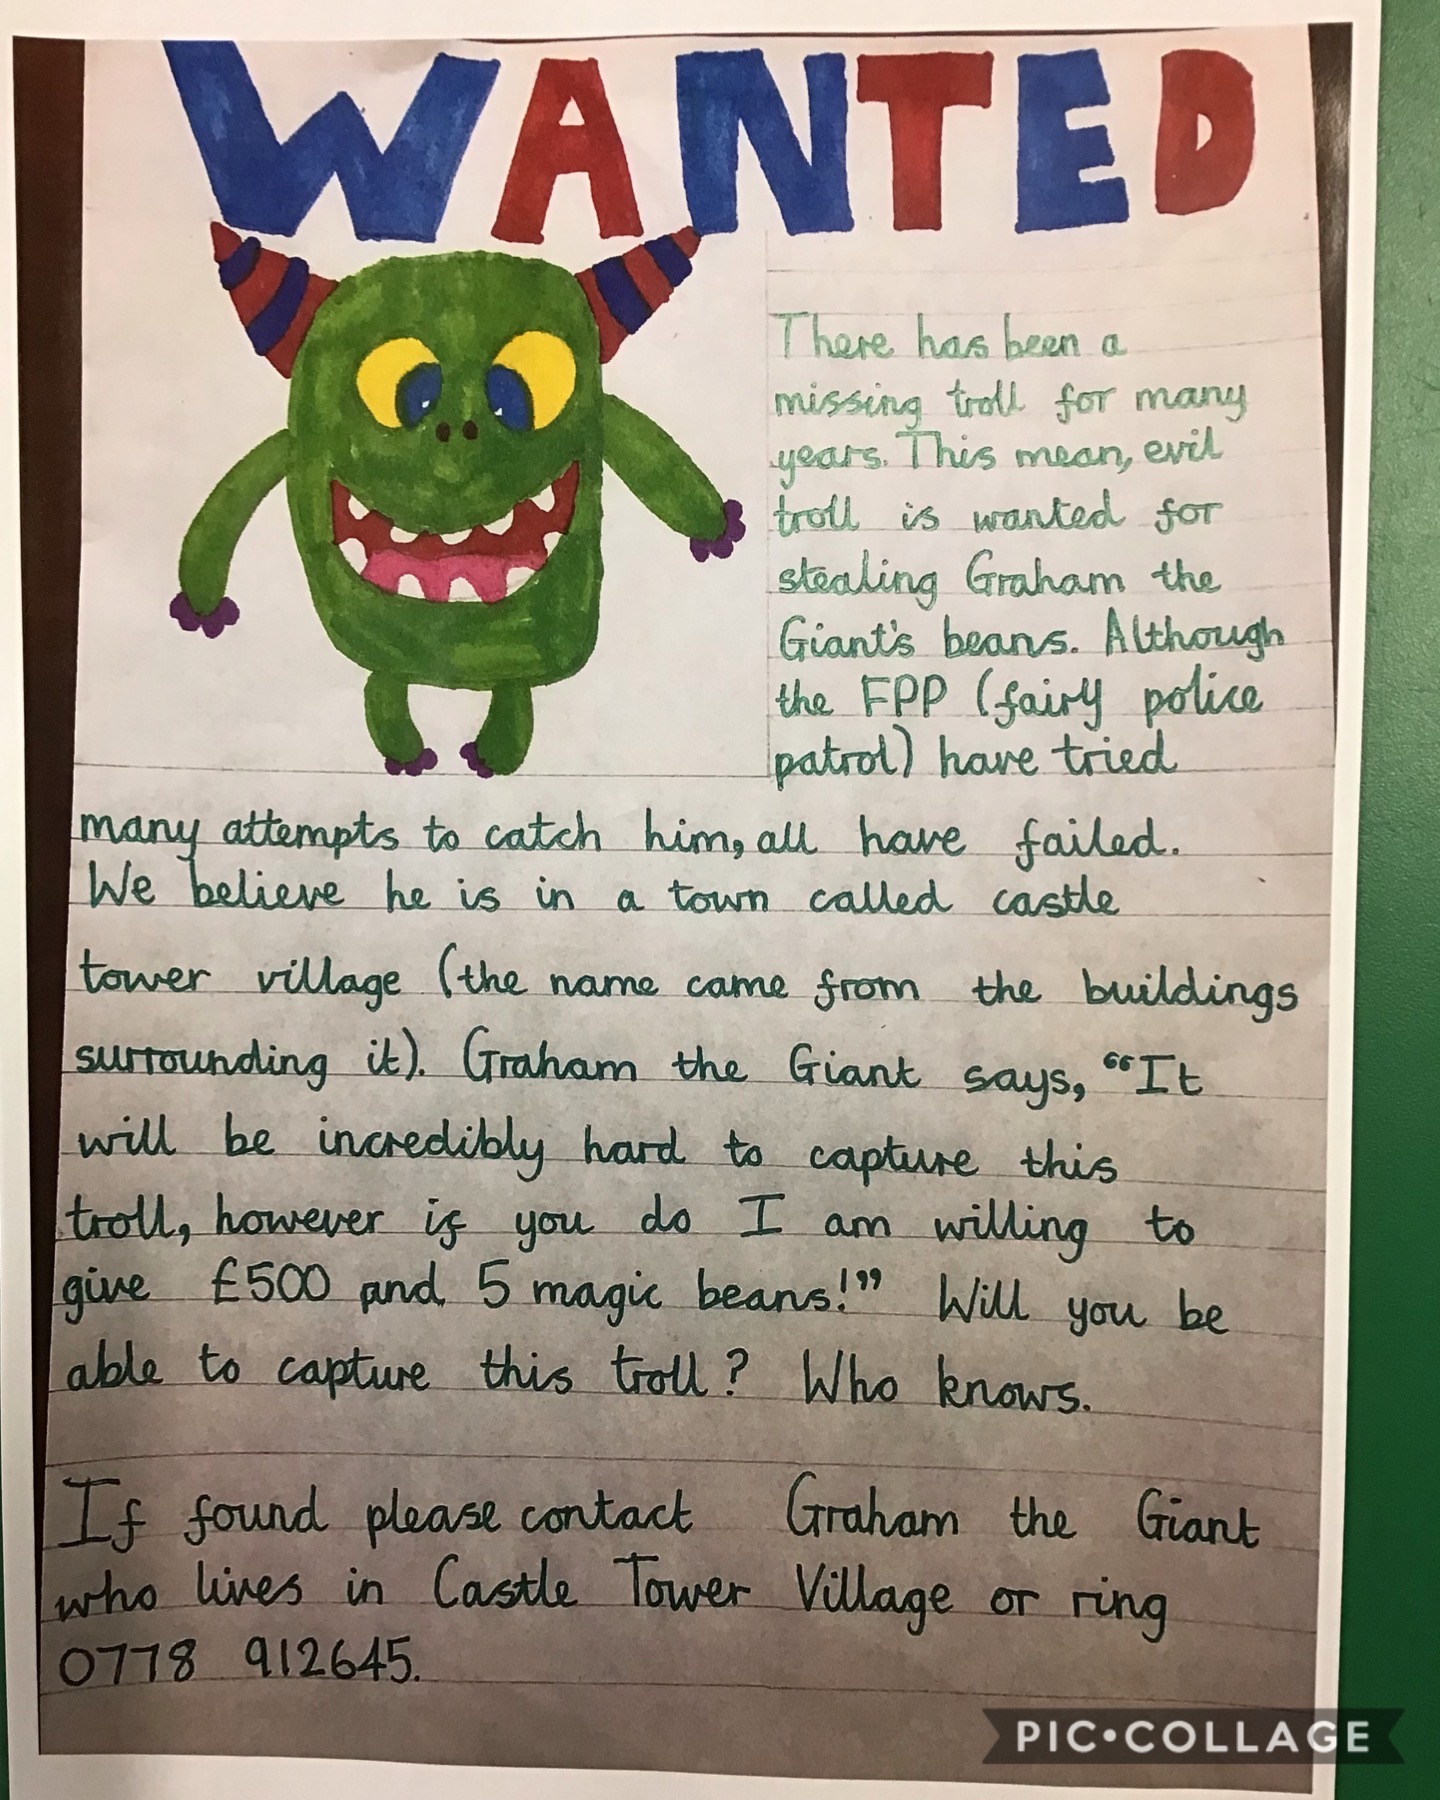 WANTED
There has been a
missing troll for many
years. This mean, evil
troll is wanted for
stealing Graham the
Giant's beans. Although
the FPP (fairy police
patrol) have tried
many attempts to catch him, all have failed.
We believe he is in a town called castle
tower village (the name came from the buildings
surrounding it). Graham the Giant says, “It
will be incredibly hard to capture this
troll, however if you do I am willing to
give £500 and 5 magic beans!” Will you be
able to capture this troll? Who knows.
If found please contact Graham the Giant
who lives in Castle Tower Village or ring
0778 912645.
PIC•COLLAGE